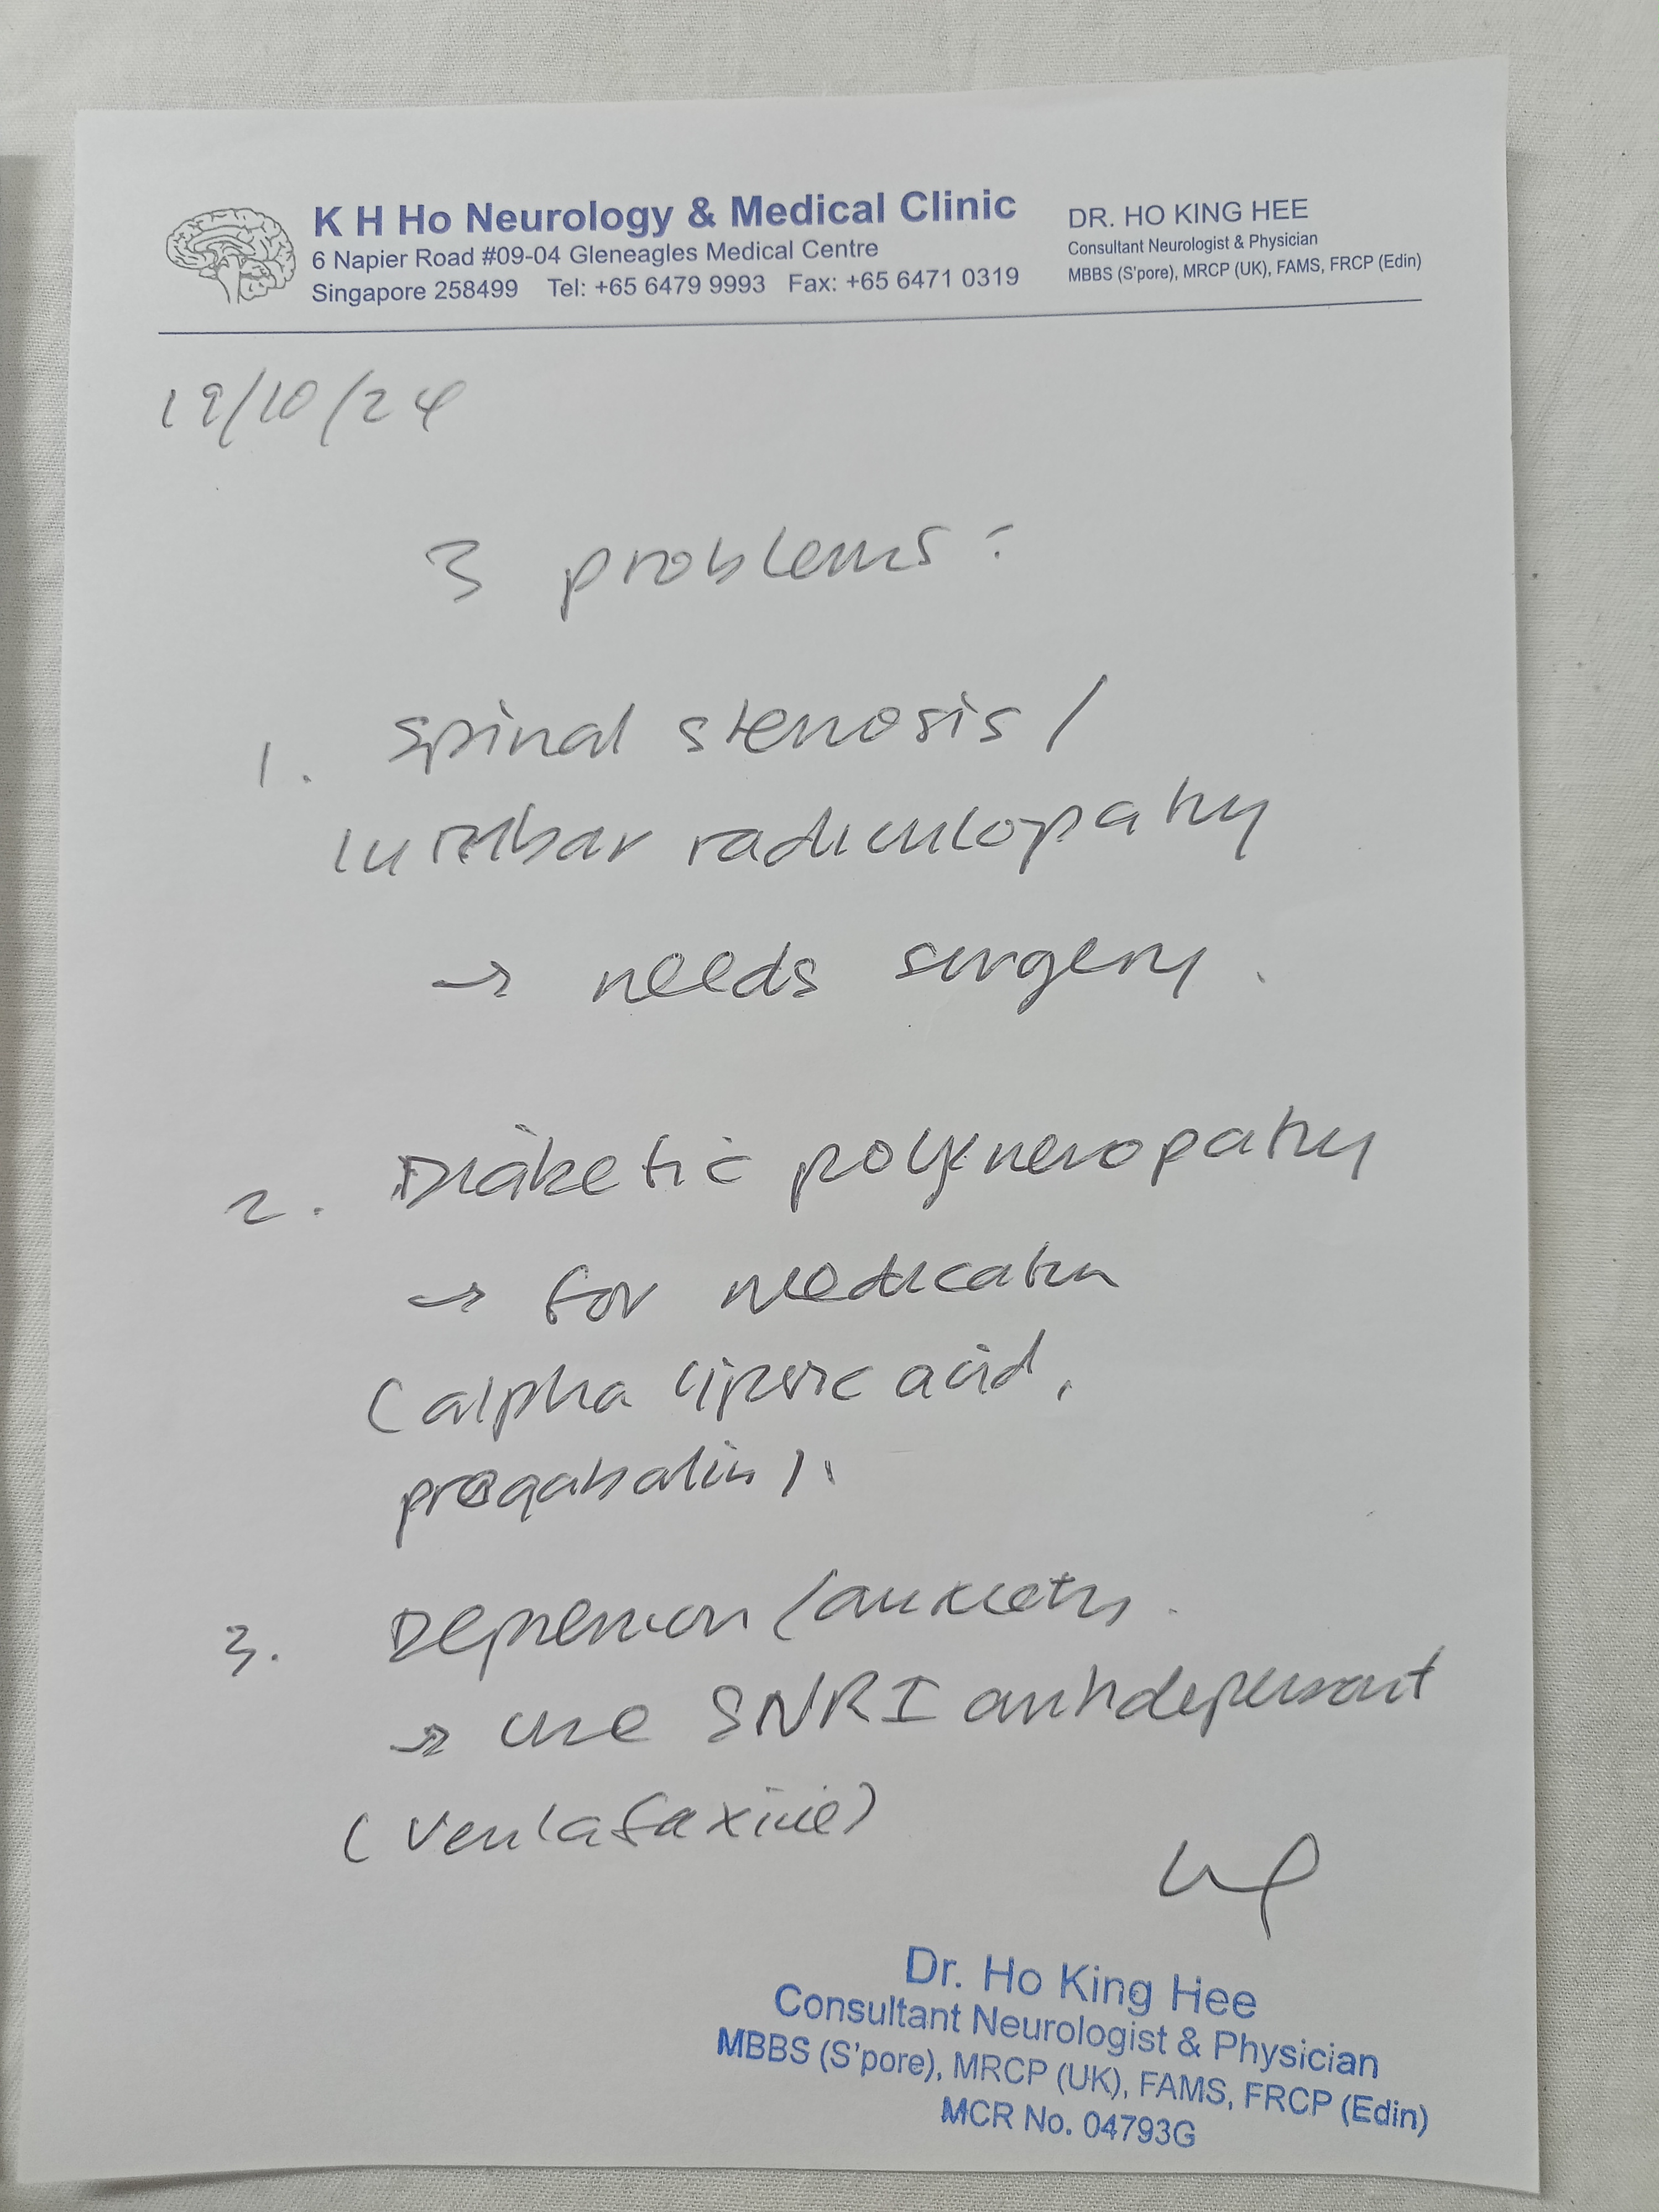 K H Ho Neurology & Medical Clinic
6 Napier Road #09-04 Gleneagles Medical Centre
Singapore 258499 Tel: +65 6479 9993 Fax: +65 6471 0319
DR. HO KING HEE
Consultant Neurologist & Physician
MBBS (S'pore), MRCP (UK), FAMS, FRCP (Edin)
19/10/24
3 problems:
1. Spinal stenosis /
lumbar radiculopathy
→ needs surgery.
2. Diabetic polyneuropathy
→ for medication
(alpha lipoic acid,
pregabalin).
3. Depression/anxiety.
→ use SNRI antidepressant
(venlafaxine)
Dr. Ho King Hee
Consultant Neurologist & Physician
MBBS (S'pore), MRCP (UK), FAMS, FRCP (Edin)
MCR No. 04793G